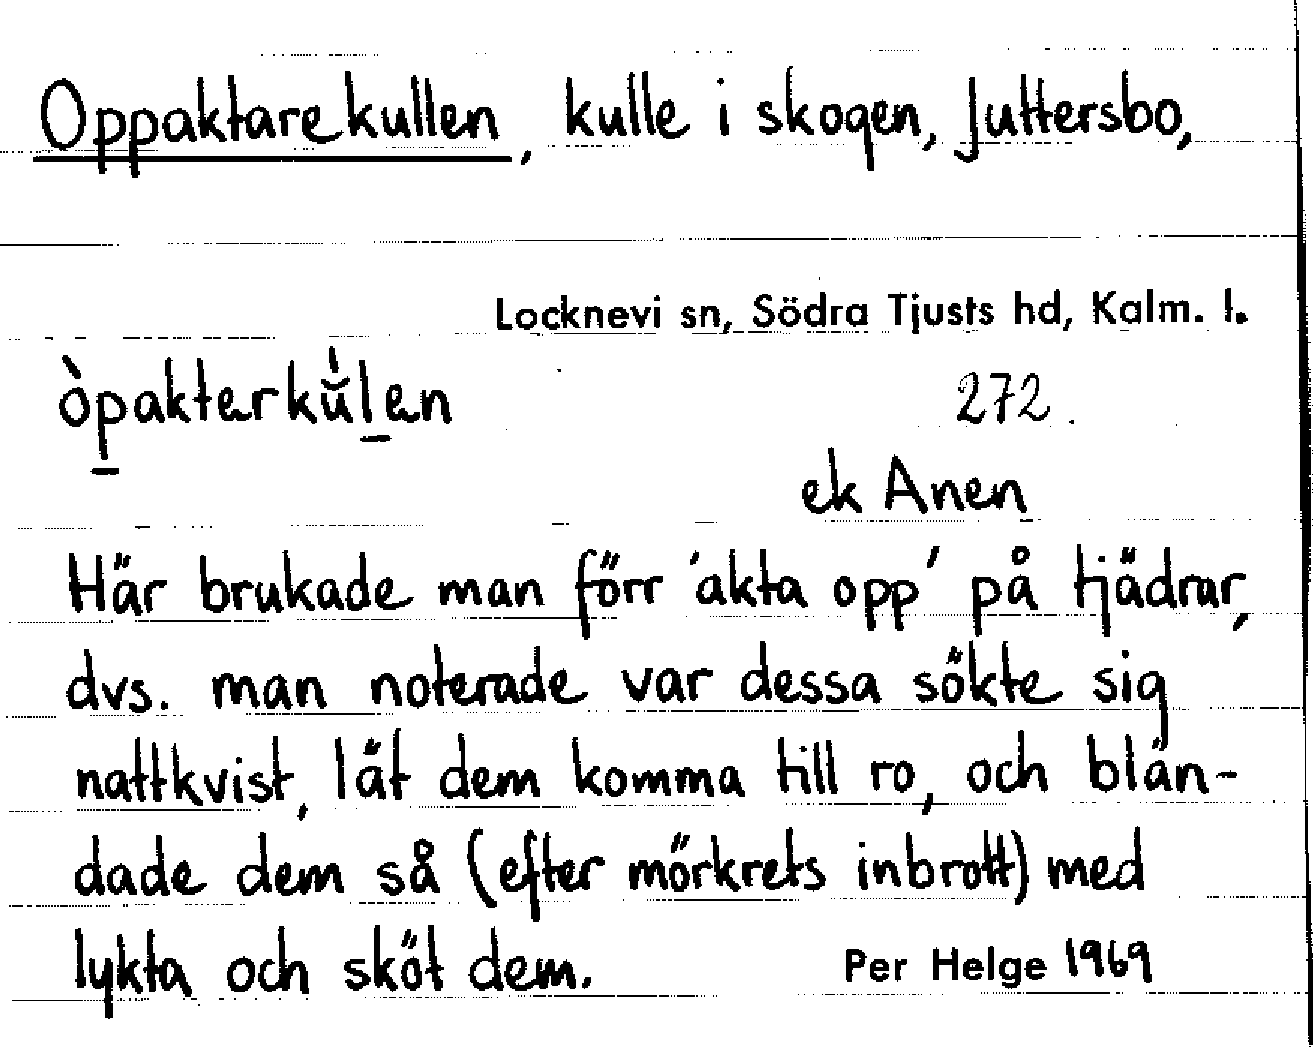 Oppaktarekullen, kulle i skogen, Juttersbo,
Locknevi sn, Södra Tjusts hd, Kalm. l.
òpakterkùlen
272.
ek Anen
Här brukade man förr 'akta opp' på tjädrar,
dvs. man noterade var dessa sökte sig
nattkvist, lät dem komma till ro, och blän-
dade dem så (efter mörkrets inbrott) med
lykta och sköt dem.
Per Helge 1969